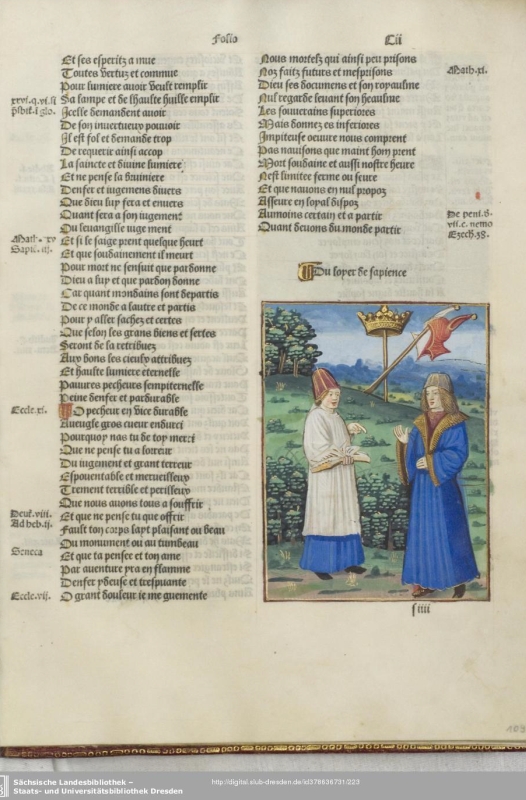 Folio
Cii
Et ses esperitz a mue
Toutes vertuz et commue
Pour lumiere avoir veult remplir
xxvi. q. vi. si
Sa lampe et de lhaulte huille emplir
Icelle demandent avoir
De son invertueux pouvoir
Il est fol et demande trop
De requerir ainsi accop
La saincte et divine lumiere
Et ne pense sa bruiniere
Denfer et iugemens divers
Que dieu luy fera et envers
Quant sera a son iugement
Ou levangille iuge ment
Math. xv
Et si le saige prent quelque heurt
Sapie. iij.
Et que soudainement il meurt
Pour mort ne sensuit que pardonne
Dieu a luy et que pardon donne
Car quant mondains sont departis
De ce monde a lautre et partis
Pour y aller sachez et certes
Que selon les grans biens et sertes
Seront de la retribuez
Aux bons les cieulx attribuez
Et haulte lumiere eternelle
Pauures pecheurs sempiternelle
Peine denfer et pardurable
Eccle. xi.
O pecheur en vice durable
Aueugle gros cueur endurci
Pourquoy nas tu de toy merci
Que ne pense tu a lorreur
Du iugement et grant terreur
Espouentable et merueilleux
Trement terrible et perilleux
Que nous auons tous a souffrir
Deut. viii.
Et que ne pense tu que offrir
Ad heb. ij.
Fault ton corps lapt plaisant ou beau
Ou monument ou au tumbeau
Seneca
Et que ta penser et ton ame
Par aventure yra en flamme
Denfer ydeuse et trespuante
Eccle. vij.
O grant douleur ie me guemente
Nous mortelz qui ainsi peu prisons
Noz faitz futurs et mesprisons
Math. xi.
Dieu ses documens et son royaulme
Nul regarde levant son heaulme
Les souverains superiores
Mais donnez es inferiores
Impiteuse oeuvre nous comprent
Pas navisons que maint hom prent
Mort soudaine et aussi nostre heure
Nest limitee ferme ou seure
Et que navons en nul propoz
Asseure en loyal dispoz
Aumoins certain et a partir
De peni. d.
Quant devons du monde partir
vii. c. nemo
Ezech. 38.
Du loyer de sapience
s iiii
Sächsische Landesbibliothek –
Staats- und Universitätsbibliothek Dresden
http://digital.slub-dresden.de/id378636731/223